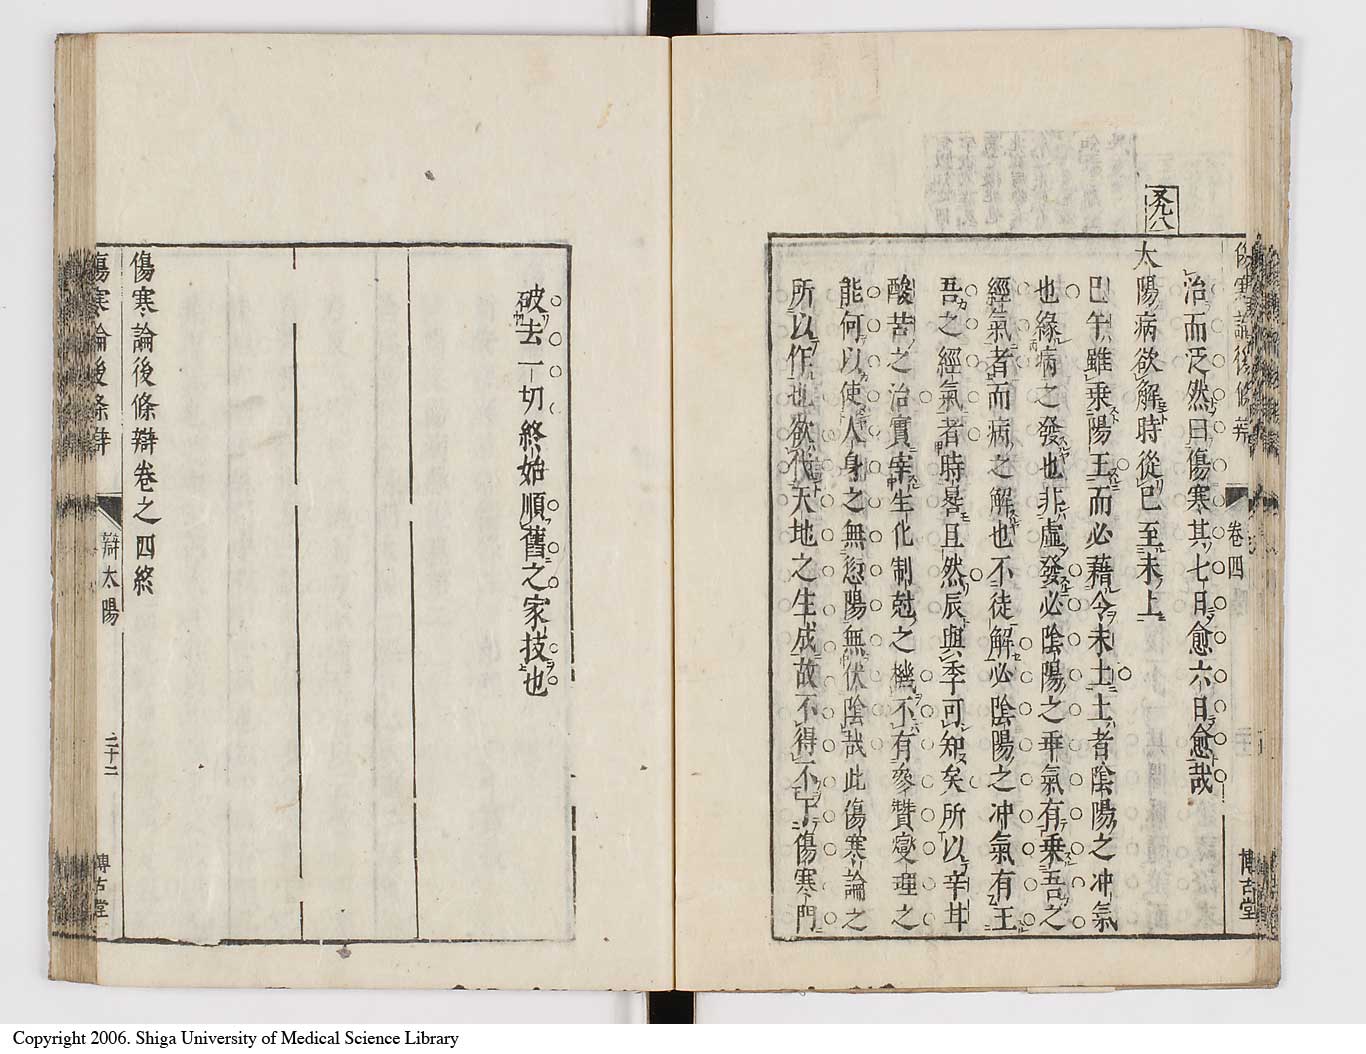 傷寒論後條辨
卷四
博古堂
治而泛然曰傷寒其七日愈六日愈哉
太陽病欲解時從巳至未上
巳午雖乗陽王而必藉令未土土者陰陽之冲氣
也緣病之發也非虛發必陰陽之乖氣有乗吾之
經氣者而病之解也不徒解必陰陽之冲氣有王
吾之經氣者時晷且然辰與季可知矣所以辛甘
酸苦之治實宰生化制尅之機不有參贊燮理之
能何以使人身之無愆陽無伏陰哉此傷寒論之
所以作也欲代天地之生成故不得不于傷寒門
破去一切終始順舊之家技也
傷寒論後條辯卷之四終
傷寒論後條辨
辯太陽
二十二
博古堂
Copyright 2006. Shiga University of Medical Science Library